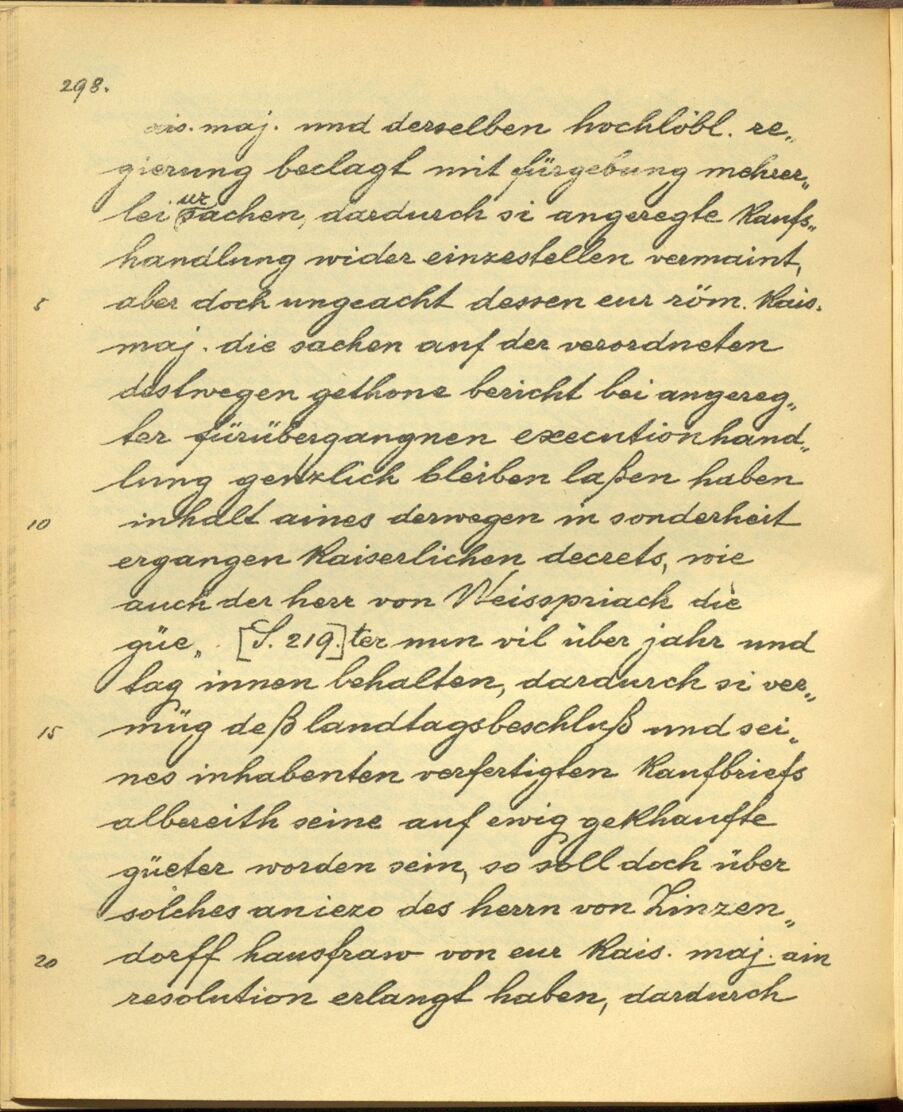 298.
ais. maj. und derselben hochlöbl. re„
gierung beclagt mit fürgebung mehrer„
lei ursachen, dardurch si angeregte kaufs„
handlung wider einzestellen vermaint,
5 aber doch ungeacht dessen eur röm. kais.
maj. die sachen auf der verordneten
destwegen gethone bericht bei angereg„
ter fürübergangnen execution hand„
lung genzlich bleiben laßen haben
10 inhalt aines derwegen in sonderheit
ergangen kaiserlichen decrets, wie
auch der herr von Weisspriach die
güe„ [S. 219.] ter nun vil über jahr und
tag innen behalten, dardurch si ver„
15 müg deß landtagsbeschluß und sei„
nes inhabenten verfertigten kaufbriefs
albereith seine auf ewig gekhaufte
güeter worden sein, so soll doch über
solches aniezo des herrn von Zinzen„
20 dorff hausfraw von eur kais. maj. ain
resolution erlangt haben, dardurch